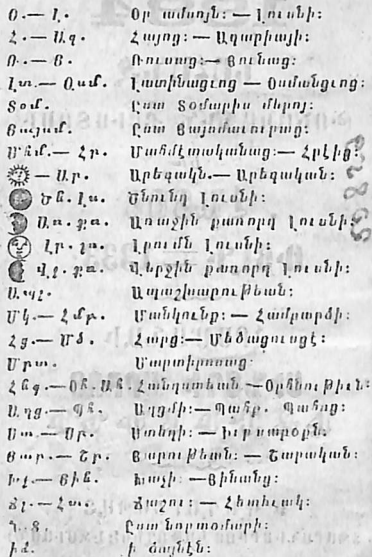 Օ.— Լ. Օր ամսոյն։— Լուսնի։
Հ.— Ազ. Հայոց։— Ազարիայի։
Ռ.— Յ. Ռուսաց։— Յունաց։
Լտ.— Օսմ. Լատինացւոց — Օսմանցւոց։
Տօմ. Ըստ Տօմարիս մերոյ։
Յայսմ. Ըստ Յայսմաւուրաց։
Մհմ.— Հր. Մահմէտականաց։— Հրէից։
— Ար. Արեգակն.— Արեգական։
Ծն. Լս. Ծնունդ Լուսնի։
Առ. քռ. Առաջին քառորդ Լուսնի։
Լր. լս. Լրումն Լուսնի։
Վջ. քռ. Վերջին քառորդ Լուսնի։
Ապշ. Ապաշխարութեան։
Մկ.— Հմբ. Մանկունք։ — Համբարձի։
Հց.— Մծ. Հարց։— Մեծացուսցէ։
Մրտ. Մարտիրոսաց.
Հնգ.— Օհ. Ան. Հանգստեան —Օրհնութիւն։
Աղց.— Պհ. Աղցմի։— Պահք. Պահոց։
Ստ.— Սր. Ստեղի։—
Յար.— Շր. Յարութեան։ — Շարական։
Խչ.— Յին. Խաչի — Յինանց։
Ճշ.— Հտ. Ճաշու։ — Հետեւակ։
Ըստ նորատօմարի։
ի ձ. ի ձայնէն։